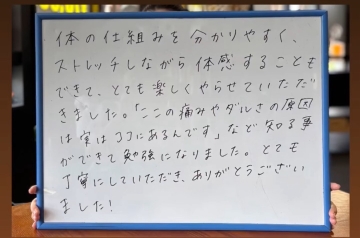 体の仕組みを分かりやすく、
ストレッチしながら体感することも
できて、とても楽しくやらせていただ
きました。「ここの痛みやダルさの原因
は実はココにあるんです」など知る事
ができて勉強になりました。とても
丁寧にしていただき、ありがとうござい
ました!